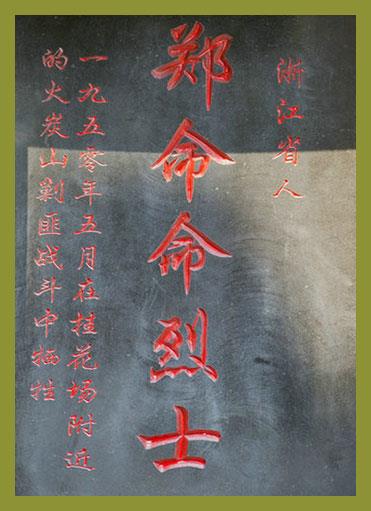 浙江省人
郑命命烈士
一九五零年五月在桂花场附近
的火炭山剿匪战斗中牺牲